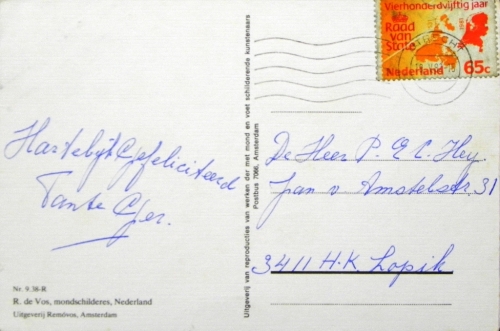 Hartelijk Gefeliciteerd
Tante Ger.
Nr. 9.38-R
R. de Vos, mondschilderes, Nederland
Uitgeverij Removos, Amsterdam
Uitgeverij van reproducties van werken der met mond en voet schilderende kunstenaars
Postbus 7066, Amsterdam
Vierhonderdvijftig jaar
Raad
van
State
Nederland 65c
De Heer P. E. C. Hey.
Jan v Amstelstr. 31
3411 H.K. Lopik